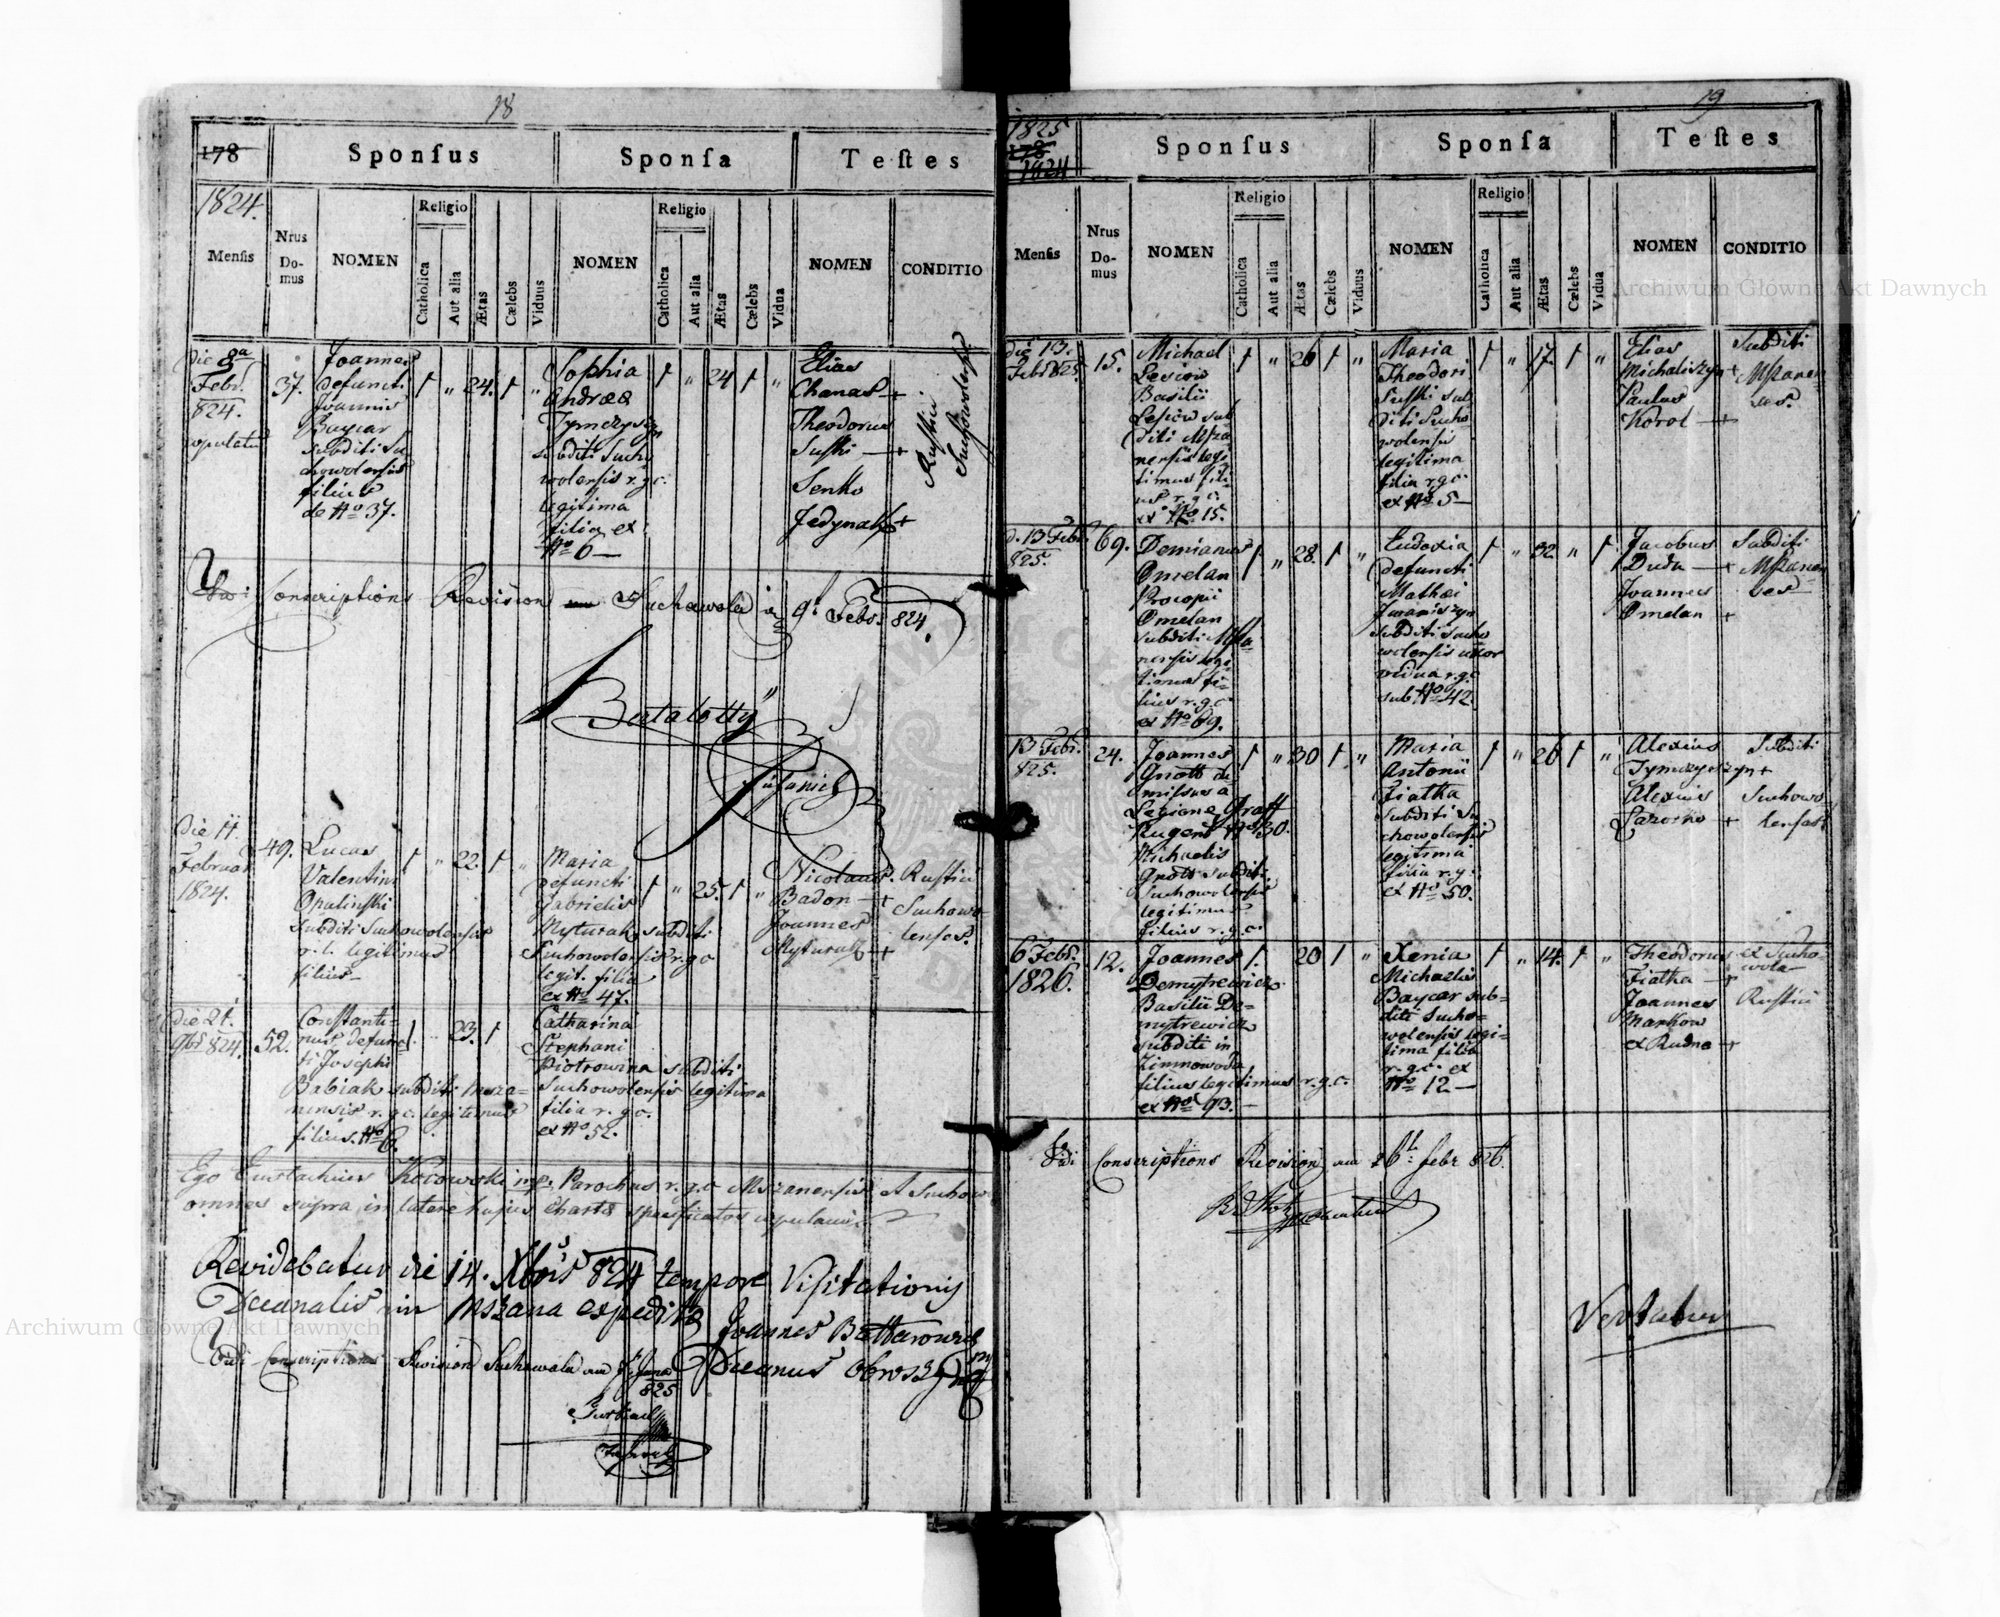 18
178
Sponſus
Sponſa
Teſtes
1824.
Menſis
Nrus
Do-
mus
NOMEN
Religio
Catholica
Aut alia
Ætas
Cælebs
Viduus
NOMEN
Religio
Catholica
Aut alia
Ætas
Cælebs
Vidua
NOMEN
CONDITIO
Die 8a
Febr.
824.
37.
Joannes
defuncti
Joannis
Baycar
subditi Su
chowolensis
filius
de No 37.
1 " 24. 1 "
Sophia
Andreæ
Tymczyszyn
subditi Sucho
wolensis r. g. c.
legitima
filia ex
No 6 —
1 " 24 1 "
Elias
Chanas +
Theodorus
Suski — +
Senko
Jedynak +
Rustici
Suchowolens.
Vidi Conscriptions Revision Suchawola 9t Febr. 824.
Bertalotty
Die 11.
Februar
1824.
49.
Lucas
Valentini
Opalinski
subditi Suchowolensis
r. l. legitimus
filius —
1 " 22. 1 "
Maria
defuncti
Gabrielis
Myturak subditi
Suchowolensis r. g. c
legit. filia
ex No 47.
1 " 25. 1 "
Nicolaus
Badon — +
Joannes
Myturak — +
Rustici
Suchowo
lenses.
Die 21.
9bris 824.
52.
Constanti-
nus defunc
ti Josephi
Babiak subditi Msza-
nensis r. g. c. legitimus
filius. No 6.
1 " 23. 1
Catharina
Stephani
Piotrowina subditi
Suchowolensis legitima
filia r. g. c.
ex No 52.
Ego Eustachius Kocowski mp. Parochus r. g. c Mszanensis et Suchow
omnes supra in latere hujus chartæ specificatos copulavi.
Revidebatur die 14. Xbris 824 tempore Visitationis
Decanalis in Mszana expeditæ
Joannes
Decanus
Vidi Conscriptions Revision Suchawola am
825
19
1825
178
1824
Sponſus
Sponſa
Teſtes
Menſis
Nrus
Do-
mus
NOMEN
Religio
Catholica
Aut alia
Ætas
Cælebs
Viduus
NOMEN
Religio
Catholica
Aut alia
Ætas
Cælebs
Vidua
NOMEN
CONDITIO
die 13.
Febr 825.
15.
Michael
Lesiow
Basilii
Lesiow sub
diti Msza
nensis legi
timus fili
us r. g. c.
ex No 15.
1 " 26 1 "
Maria
Theodori
Suski sub
diti Sucho
wolensis
legitima
filia r. g. c.
ex No 5 —
1 " 17. 1 "
Elias
Michaliszyn +
Paulus
Korol — +
Subditi
Mszanen
ses.
d. 13 Febr.
825.
69.
Demianus
Omelan
Procopii
Omelan
subditi Msza
nensis legi
timus fi-
lius r. g. c.
ex No 69.
1 " 28. 1 "
Eudoxia
defuncti
Mathæi
subditi Sucho
wolensis uxor
vidua r. g. c.
sub No 42.
1 " 32 " 1
Jacobus
Duda — +
Joannes
Omelan +
Subditi
Mszanen
ses
13 Febr.
825.
24.
Joannes
Gnott di
missus a
Legione Graff
Nugent No 30.
Michaelis
Gnott subditi
Suchowolensis
legitimus
filius r. g. c.
1 " 30 1 "
Maria
Antonii
Fiatka
subditi Su
chowolensis
legitima
filia r. g. c
ex No 50.
1 " 26 1 "
Alexius
Tymczyszyn +
Alexius
Lazorko — +
Subditi
Suchowo
lenses
6 Febr.
1826.
12.
Joannes
Demytrewicz
Basilii De-
mytrewicz
subditi in
Zimnowoda
filius legitimus r. g. c.
ex No 93. —
1. 20 1 "
Xenia
Michaelis
Baycar sub-
diti Sucho-
wolensis legi-
tima filia
r. g. c. ex
No 12 —
1 " 14. 1 "
Theodorus
Fiatka — +
Joannes
Markow
ex Rudno +
ex Sucho-
wola —
Rustici
Vidi Conscriptions Revision am 26t febr 826.
Vertatur
Archiwum Główne Akt Dawnych
Archiwum Główne Akt Dawnych